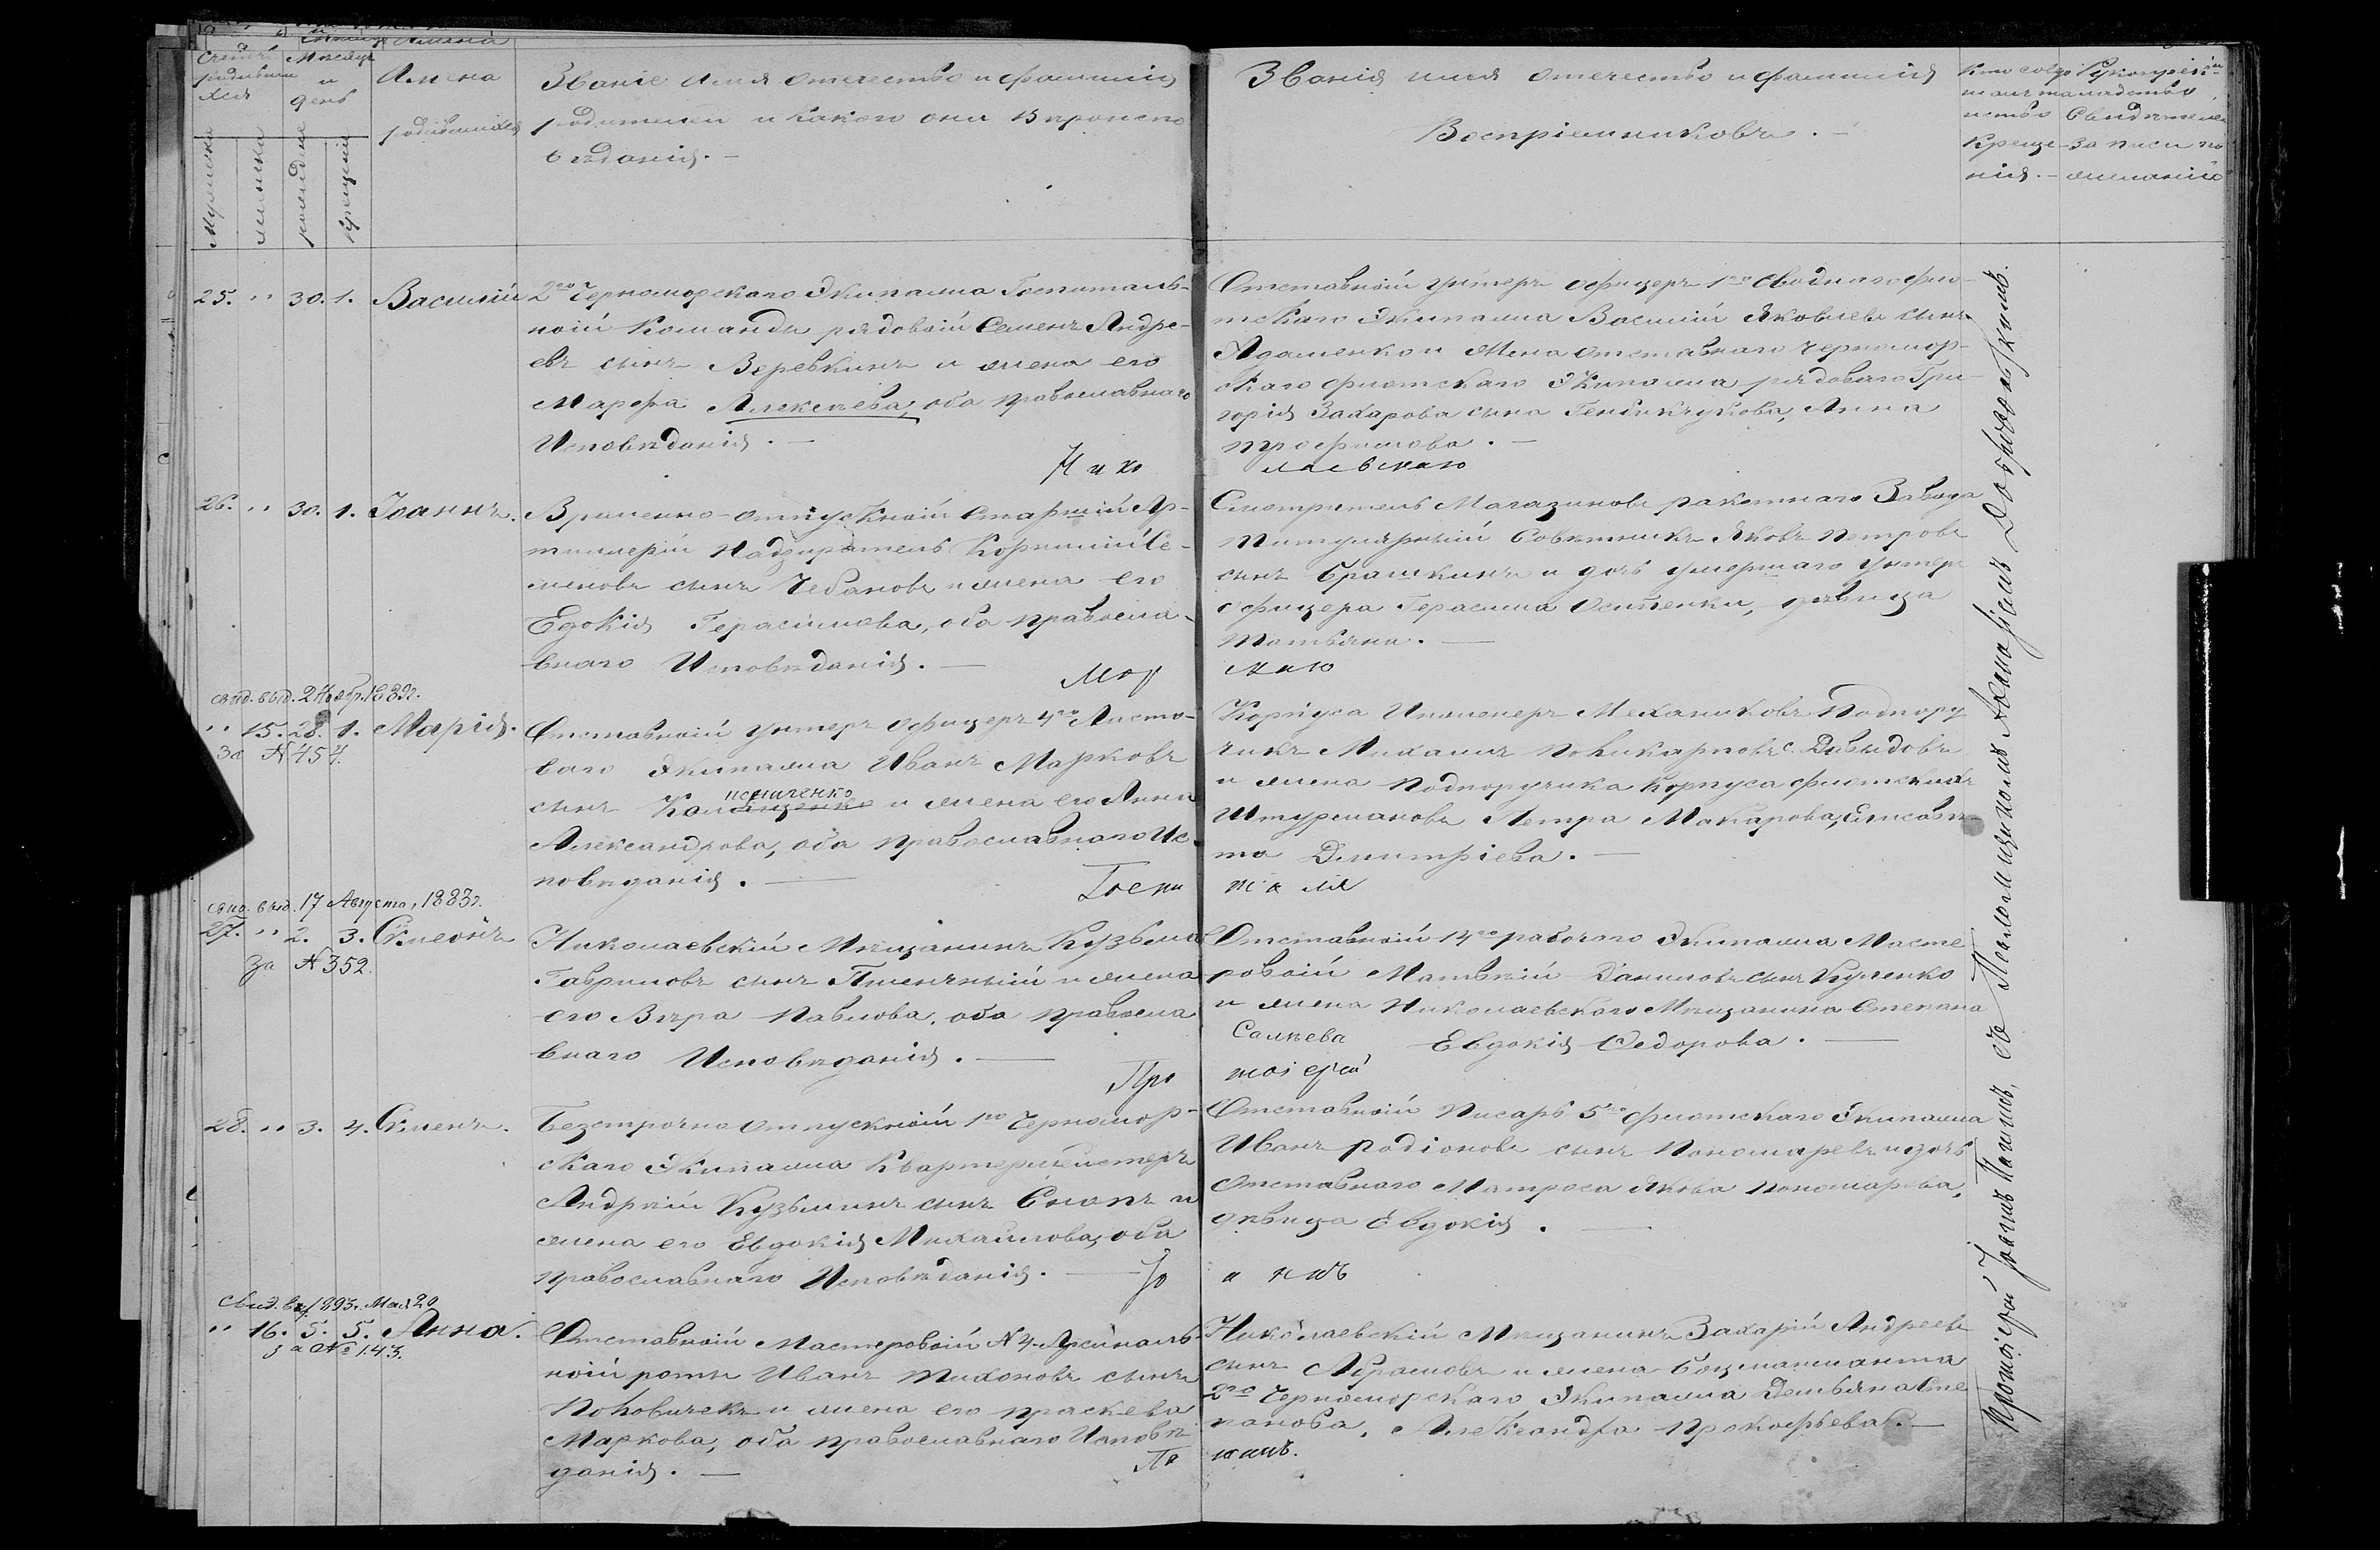 Счетъ
родивших
ся
Мѣсяцъ
и
день
Имена
родившихся
Мужеска
женска
рожденія
крещенія
Званіе имя отечество и фамилія
родителей и какого они вѣроиспо
вѣданія. —
Званія имя отечество и фамилія
Воспріемниковъ. —
Кто совер
шалъ таи
нство
Креще
нія. —
Рукоприкла
дство
Свидѣтелей
записи по
желанію
25. „ 30. 1. Василій
2го Черноморскаго Экипажа Госпиталь-
ной Команды рядовой Семенъ Андре-
евъ сынъ Веревкинъ и жена его
Марфа Алексѣева, оба православнаго
Исповѣданія. —
Нико
Отставной унтеръ офицеръ 1го Своднаго фло-
тскаго Экипажа Василій Яковлевъ сынъ
Адаменко и Жена отставнаго черномор-
скаго флотскаго Экипажа рядоваго Гри-
горія Захарова сына Анна
трофимова. —
лаевскаго
26. „ 30. 1. Іоаннъ.
Временно-отпускной Старшій Ар-
тиллеріи Надзиратель Корнилій Се-
меновъ сынъ Чебановъ и жена его
Евдокія Герасимова, оба правосла-
внаго Исповѣданія. —
Мор
Смотритель Магазиновъ ракетнаго Завода
Титулярный Совѣтникъ Яковъ Петровъ
сынъ Брашкинъ и дочь умершаго унтеръ
офицера Герасима Осипенки, дѣвица
Татьяна. —
скаго
свид. выд. 2 Ноябр. 1889г.
„ 15. 28. 1. Марія.
За № 454.
Отставной унтеръ офицеръ 4го Ласто-
ваго Экипажа Иванъ Марковъ
сынъ и жена его Анна
Александрова, оба православнаго Ис-
повѣданія. —
Госпи
Корпуса Инженеръ Механиковъ Подпору
чикъ Михаилъ Поликарповъ с. Давыдовъ
и жена Подпоручика Корпуса флотскихъ
Штурмановъ Петра Макарова, Елисаве-
та Димитріева. —
таля
свид. выд. 17 Августа, 1883г.
27. „ 2. 3. Симеонъ
За № 352.
Николаевскій Мѣщанинъ Кузьма
Гавриловъ сынъ Пшеничный и жена
его Вѣра Павлова, оба правосла
внаго Исповѣданія. —
Про
Отставной 14го рабочаго Экипажа Масте
ровой Матвѣй Даниловъ сынъ Куленко
и жена Николаевскаго Мѣщанина Степана
Салѣева Евдокія Ѳедорова. —
тоіерей
28. „ 3. 4. Симеонъ.
Безсрочно отпускной 1го Черномор-
скаго Экипажа Квартермейстеръ
Андрей Кузьминъ сынъ Снопъ и
жена его Евдокія Михайлова, оба
православнаго Исповѣданія. —
Іо
Отставной Писарь 5го флотскаго Экипажа
Иванъ Родіоновъ сынъ Пономаревъ и дочь
Отставнаго Матроса Якова Пономарева,
дѣвица Евдокія. —
аннъ
Свид. выд. 1893. Мая 20
„ 16. 5. 5. Анна.
за № 143.
Отставной Мастеровой № 4 Арсеналь-
ной роты Иванъ Тихоновъ сынъ
и жена его Праскева
Маркова, оба православнаго Исповѣ
данія. —
Па
Николаевскій Мѣщанинъ Захарій Андреевъ
сынъ Абрамовъ и жена Боцманманта
2го Черноморскаго Экипажа Демьяна Сте
панова, Александра Прокофьева. —
шинъ.
Протоіерей Іоаннъ Пашинъ, съ Псаломщикомъ Аѳанасіемъ Добровольскимъ.